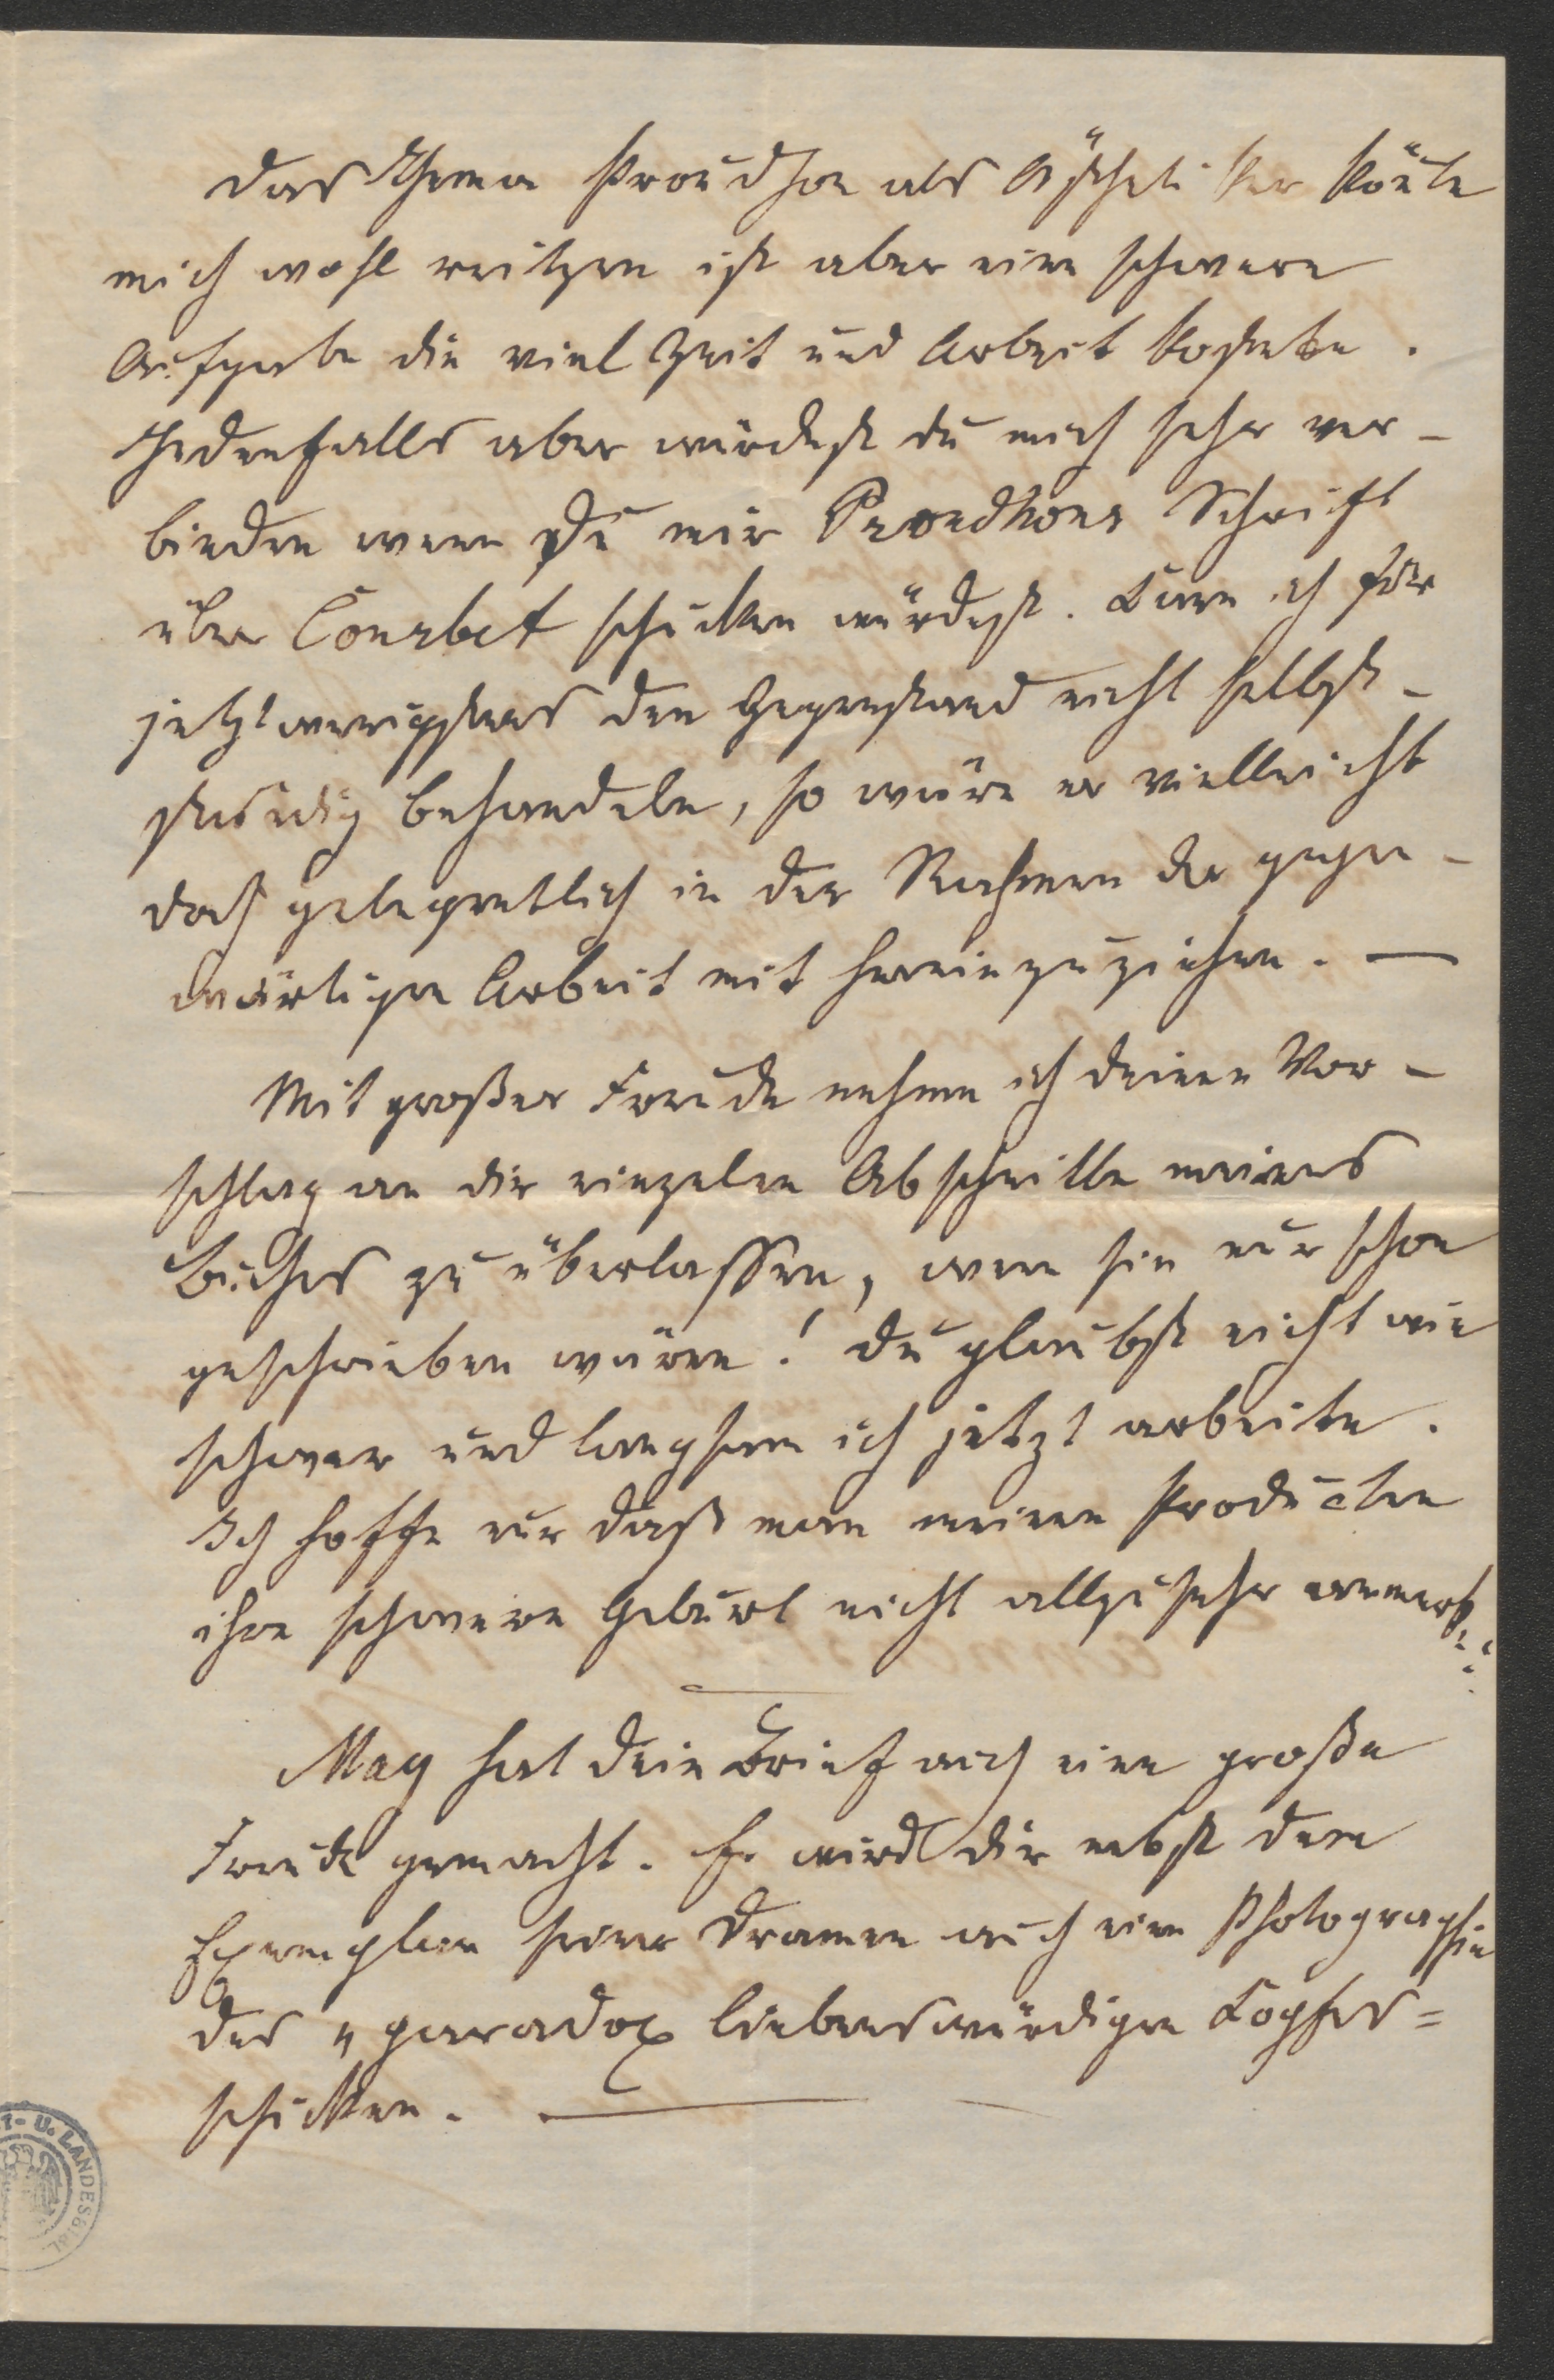 Das Thema Proudhon als Ästhetiker könte
mich wohl reitzen ist aber eine schwere
Aufgabe die viel Zeit und Arbeit kostete.
Jedenfalls aber würdest du mich sehr ver-
binden wenn Du mir Proudhons Schrift
über Courbet schicken würdest. Kann ich für
jetzt wenigstens den Gegenstand nicht selbst-
ständig behandeln, so wäre er vielleicht
doch gelegentlich in den Rahmen der gegen-
wärtigen Arbeit mit hereinzuziehen. —
Mit großer Freude nehme ich deinen Vor-
schlag an dir einzelne Abschnitte meines
Buches zu überlassen, wenn sie nur schon
geschrieben wären! Du glaubst nicht wie
schwer und langsam ich jetzt arbeite.
Ich hoffe nur daß man meinen Producten
ihre schwere Geburt nicht allzusehr anmerkt
May hat dein Brief auch eine große
Freude gemacht. Er wird dir nebst dem
Exemplar seiner Dramen auch eine Photographie
des „paradox liebenswürdigen Kopfes"
schicken. —
T- U. LANDESBIBL